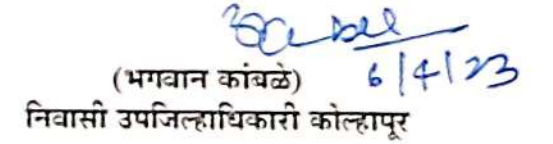 6/4/23
(भगवान कांबळे)
निवासी उपजिल्हाधिकारी कोल्हापूर